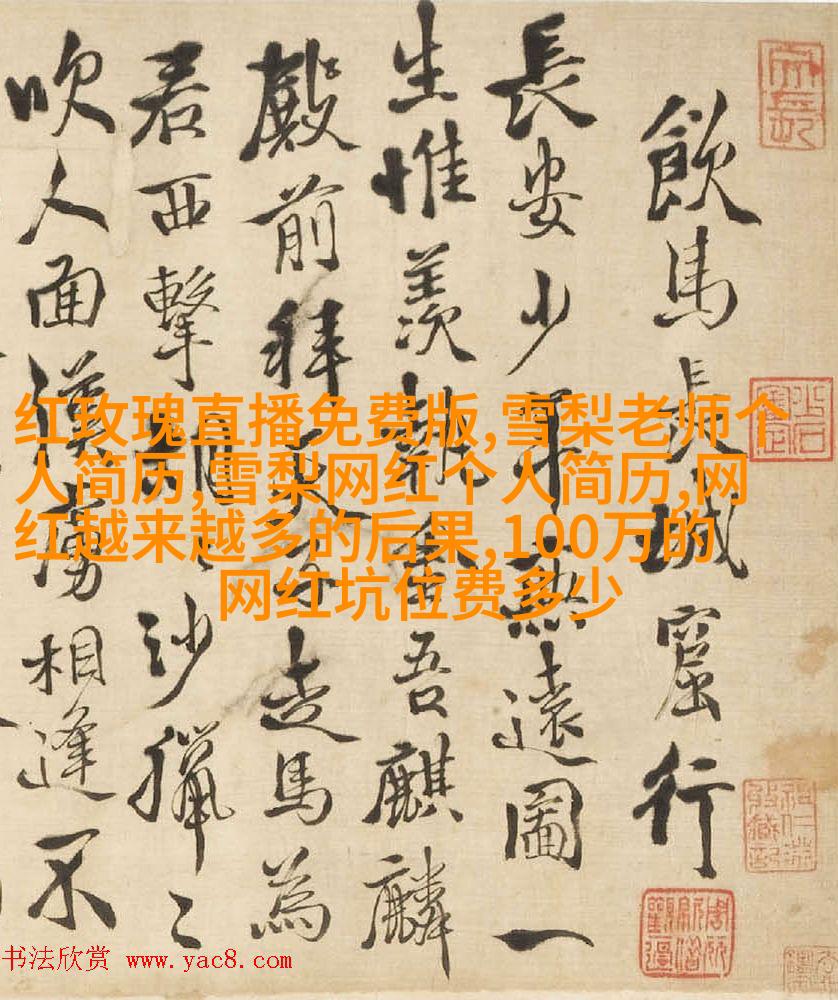 飲馬長城窟行
長安少年無遠圖一
生惟羡執金吾麒麟
殿前拜天子走馬為
君西擊胡〻沙獵〻
吹人面漢虜相逢不
红玫瑰直播免费版,雪梨老师个
人简历,雪梨网红个人简历,网
红越来越多的后果,100万的
网红坑位费多少
书法欣赏 www.yac8.com